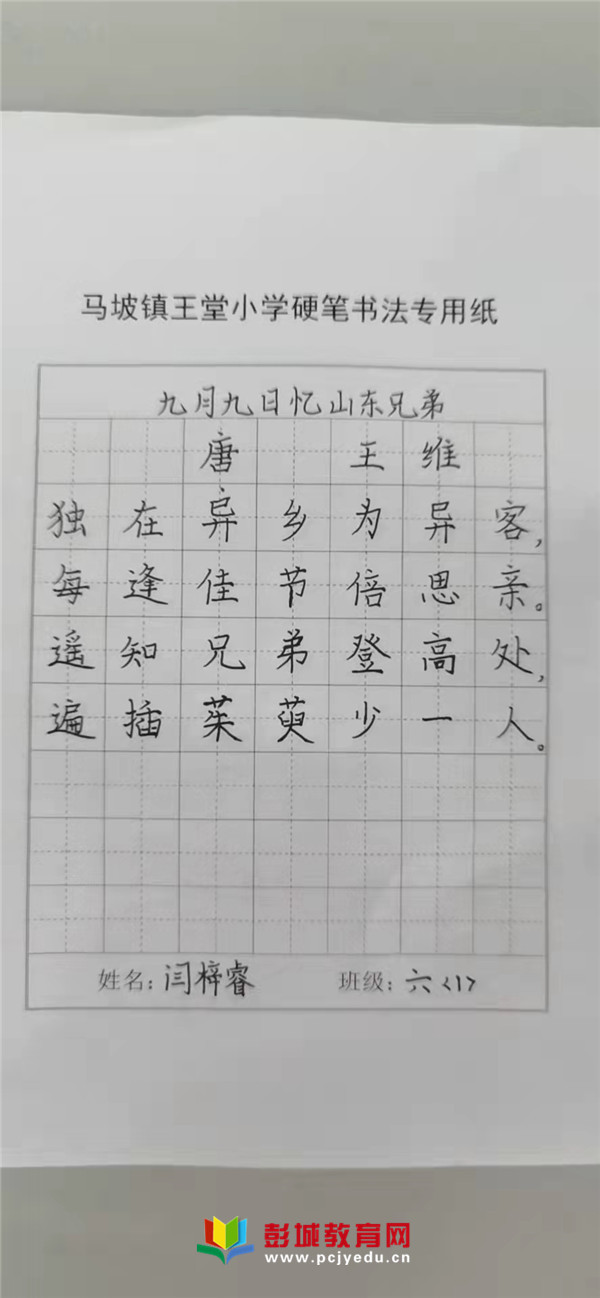 马坡镇王堂小学硬笔书法专用纸
九月九日忆山东兄弟
唐 王维
独在异乡为异客，
每逢佳节倍思亲。
遥知兄弟登高处，
遍插茱萸少一人。
姓名：闫梓睿 班级：六<1>
彭城教育网
www.pcjyedu.cn